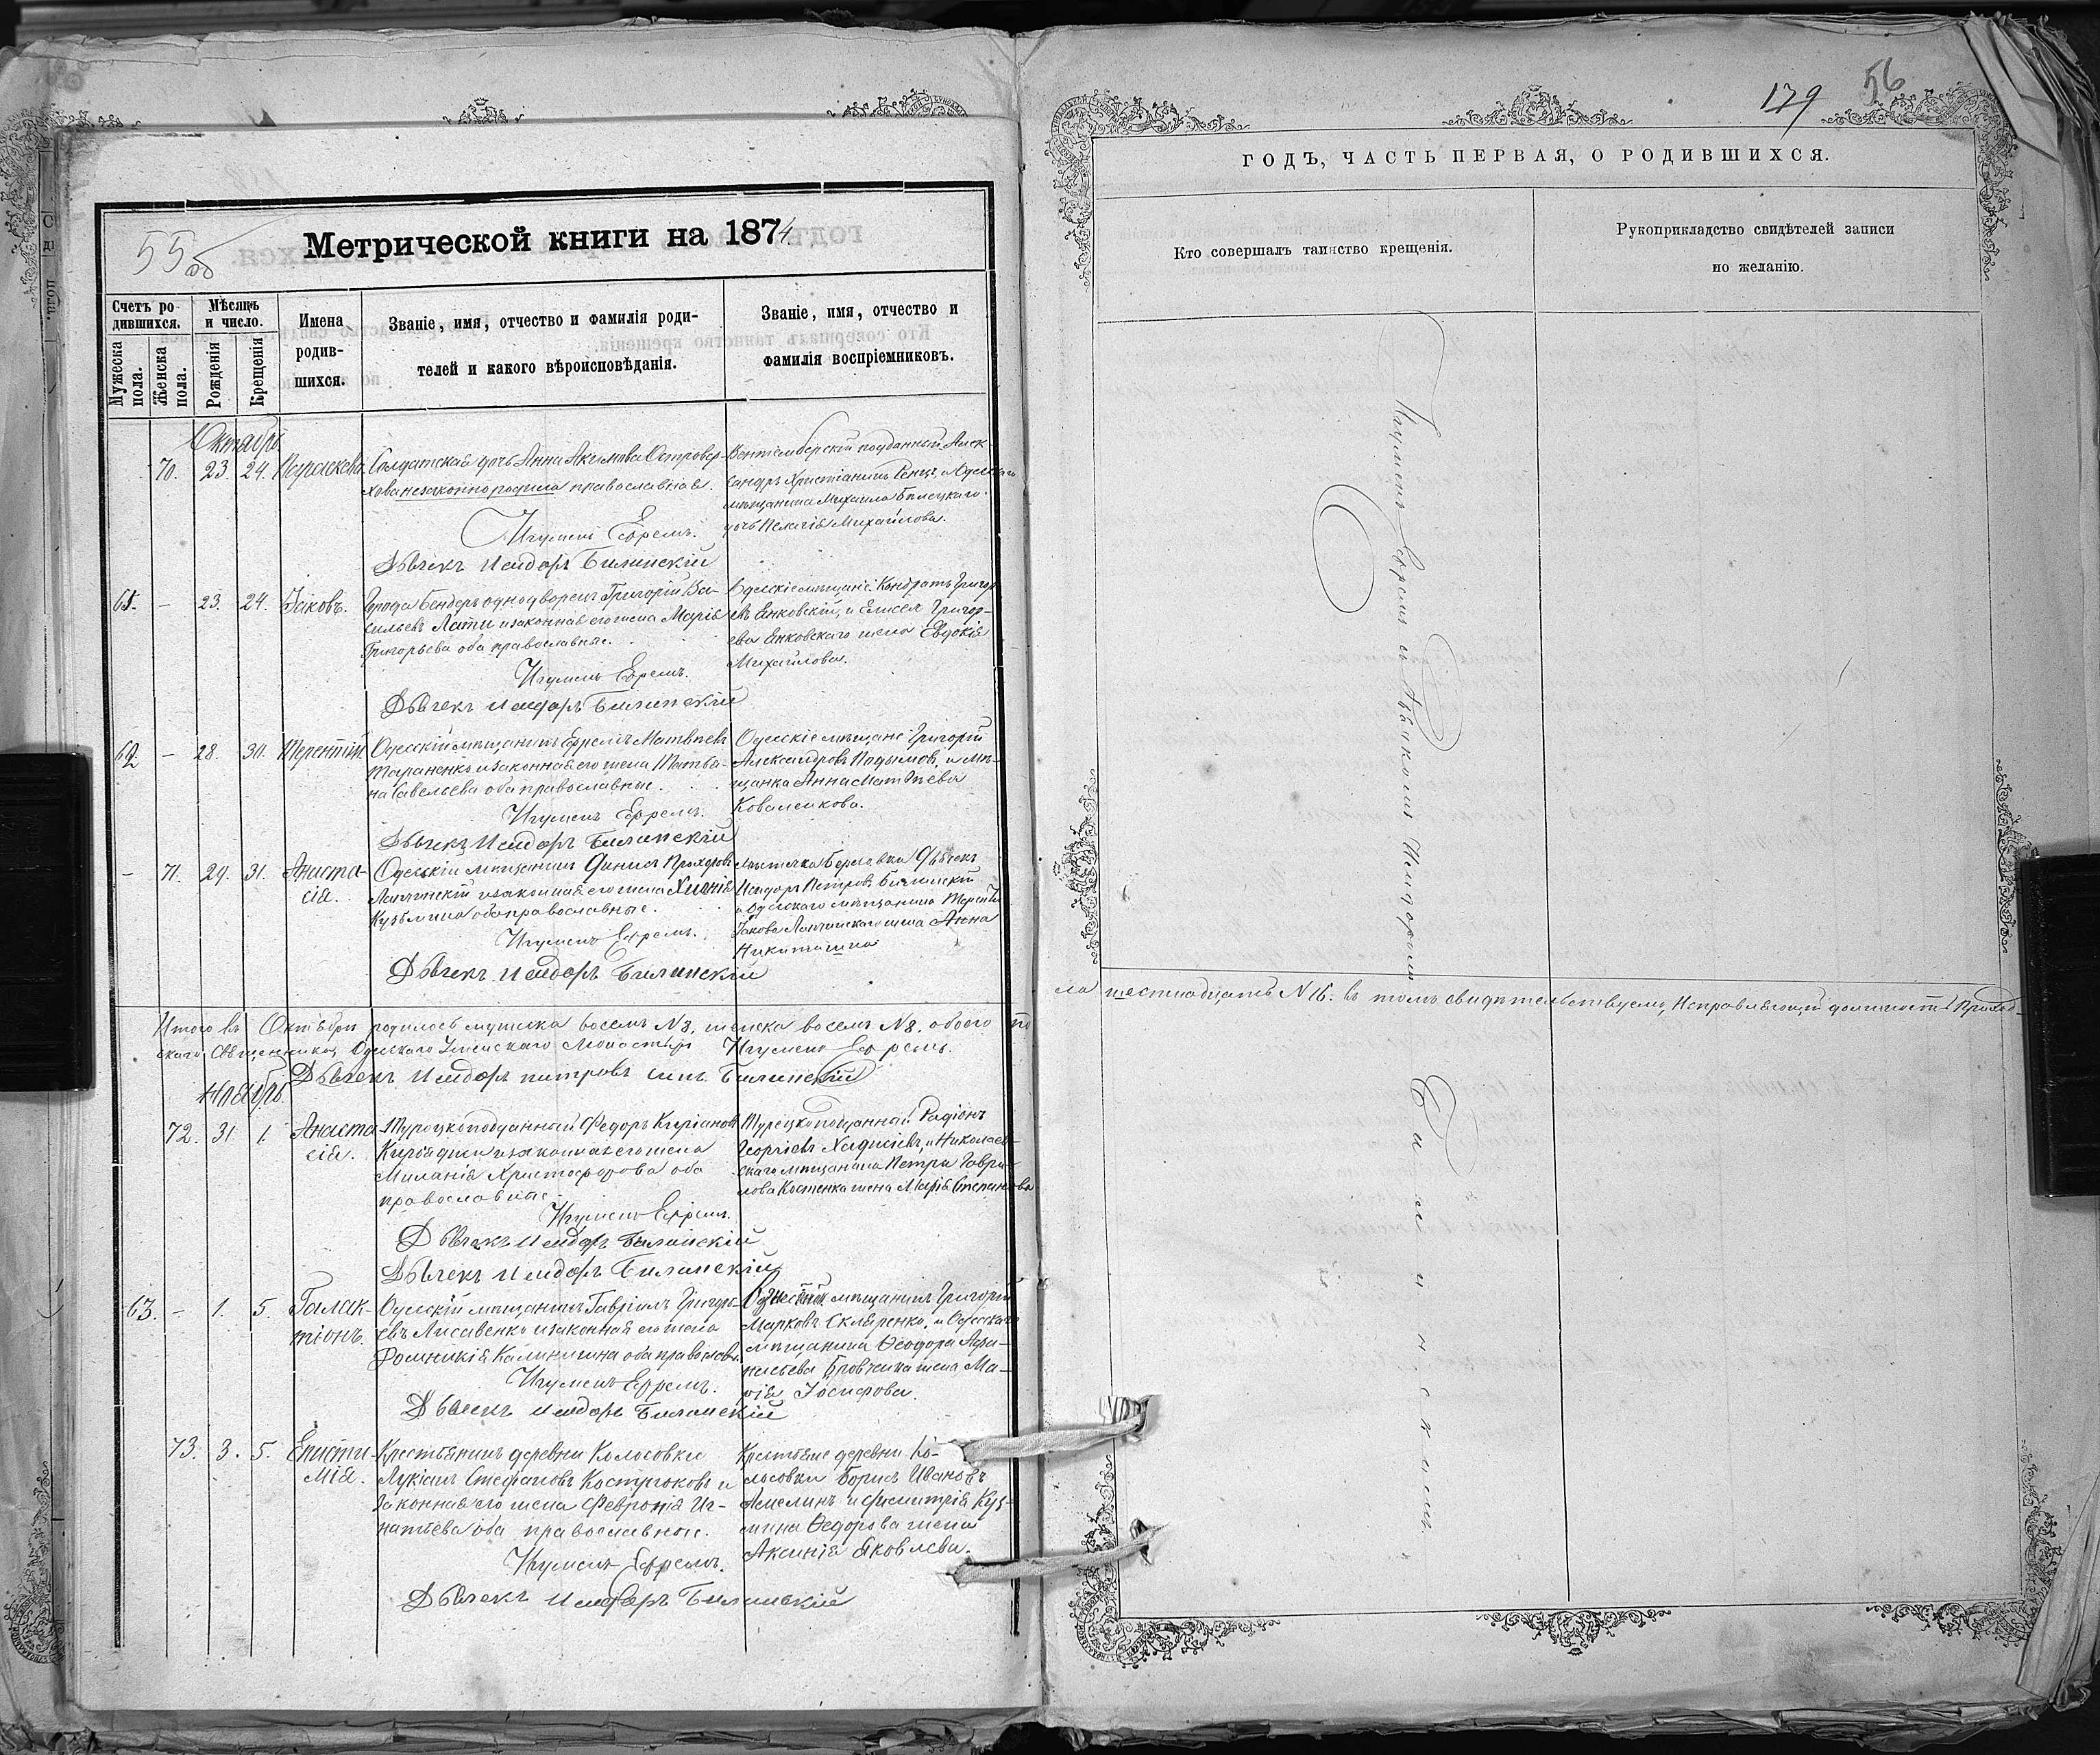 179
56
55об
Метрической книги на 1874
Счетъ ро-
дившихся.
Мѣсяцъ
и число.
Имена
родив-
шихся.
Званіе, имя, отчество и фамилія роди-
телей и какого вѣроисповѣданія.
Званіе, имя, отчество и
фамилія воспріемниковъ.
Мужеска
пола.
Женска
пола.
Рожденія
Крещенія
Октябрь
70. 23. 24. Параскева
Солдатская дочь Анна Акимова Островер-
хова незаконно родила православная.
Игуменъ Ефремъ.
Дьячекъ Исидоръ Билинскій
Виртембергскій подданный Алек-
сандръ Христіанинъ Ренцъ, и Одесскаго
мѣщанина Михаила Билецкаго
дочь Пелагія Михайлова.
61. – 23. 24. Іаковъ.
Города Бендеръ однодворецъ Григорій Ва-
сильевъ Лати и законная его жена Марія
Григорьева оба православные.
Игуменъ Ефремъ.
Дьячекъ Исидоръ Билинскій
Одесскіе мѣщане Кондратъ Григор-
евъ Янковскій, и Елисея Григор-
ева Янковскаго жена Евдокія
Михайлова.
62. – 28. 30. Терентій.
Одесскій мѣщанинъ Ефремъ Матвѣевъ
Тараненко и законная его жена Татья-
на Савельева оба православные.
Игуменъ Ефремъ.
Дьячекъ Исидоръ Билинскій
Одесскіе мѣщане Григорій
Александровъ Подымовъ, и мѣ-
щанка Анна Матвѣева
Коваленкова.
– 71. 29. 31. Анаста-
сія.
Одесскій мѣщанинъ Данилъ Прохоровъ
Лапинскій и законная его жена Ксенія
Кузьмина оба православные.
Игуменъ Ефремъ.
Дьячекъ Исидоръ Билинскій
Дьячекъ
Исидоръ Петровъ Билинскій
и Одесскаго мѣщанина Терентія
Яковлева Лапинскаго жена Анна
Никитишна
Итого въ Октябрѣ родилось мужска восемъ N 8, женска восемъ N 8. обоего по
ла шестнадцать N 16. въ томъ свидѣтельствуемъ, Исправляющій должность Приход-
скаго Священника, Одесскаго Успенскаго Монастыря Игуменъ Ефремъ.
Дьячекъ Исидоръ Петровъ сынъ Билинскій
Ноябрь
72. 31. 1. Анаста
сія.
Турецкоподданный Федоръ Киріаковъ
и законная его жена
Миланія Христофорова оба
православные
Игуменъ Ефремъ.
Дьячекъ Исидоръ Билинскій
Дьячекъ Исидоръ Билинскій
Турецкоподданный Радіонъ
Георгіевъ и Николаев-
скаго мѣщанина Петра Гаври-
лова Костенка жена Марія Степанова
63. – 1. 5. Галак-
тіонъ.
Одесскій мѣщанинъ Гавріилъ Григорь-
евъ Лисавенко и законная его жена
Домникія Калинишна оба православ.
Игуменъ Ефремъ.
Дьячекъ Исидоръ Билинскій
мѣщанинъ Григорій
Марковъ Скляренко, и Одесскаго
мѣщанина Ѳеодора Афа-
насьева жена Ма-
рія Іосифова.
73. 3. 5. Еписти
мія.
Крестьянинъ деревни Колосовки
Лукіянъ Стефановъ Костроковъ и
законная его жена Февронія Иг-
натьева оба православные.
Игуменъ Ефремъ.
Дьячекъ Исидоръ Билинскій
Крестьяне деревни Ко-
лосовки Борисъ Ивановъ
Амелинъ и Димитрія Куз-
мина Ѳедорова жена
Аксинія Яковлева.
ГОДЪ, ЧАСТЬ ПЕРВАЯ, О РОДИВШИХСЯ.
Кто совершалъ таинство крещенія.
Рукоприкладство свидѣтелей записи
по желанію.
Игуменъ Ефремъ съ Дьякомъ Исидоромъ
Билинскимъ.